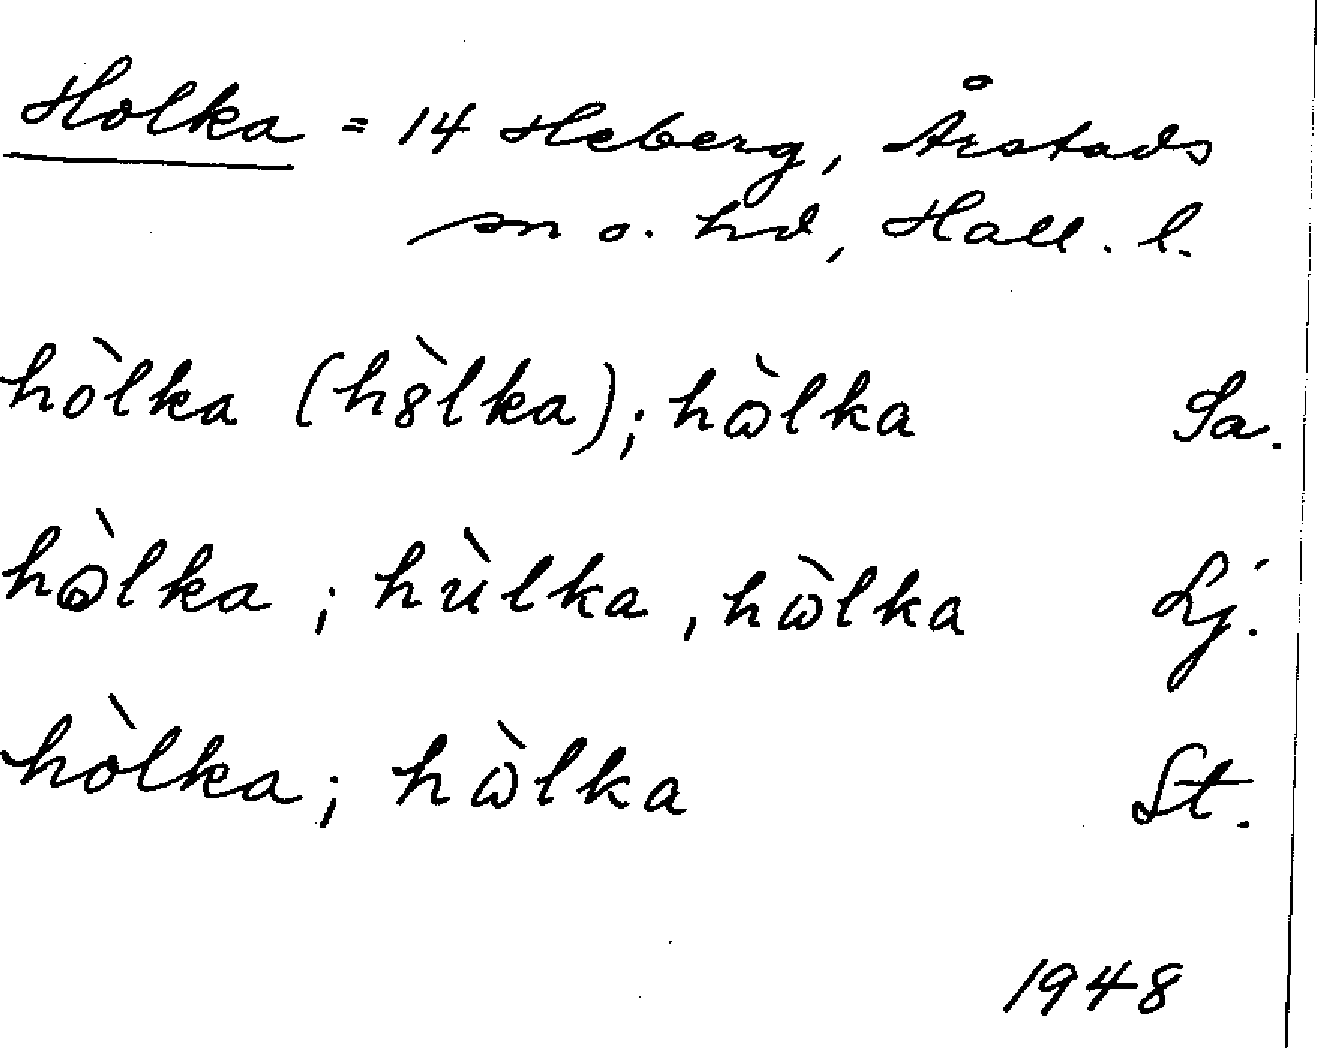 Holka = 14 Heberg, Årstads
sn o. hd, Hall. l.
hòlka (hộ̀lka); hὼlka Sa.
hòlka ; hùlka , hὼlka Lj.
hòlka ; hὼlka St.
1948